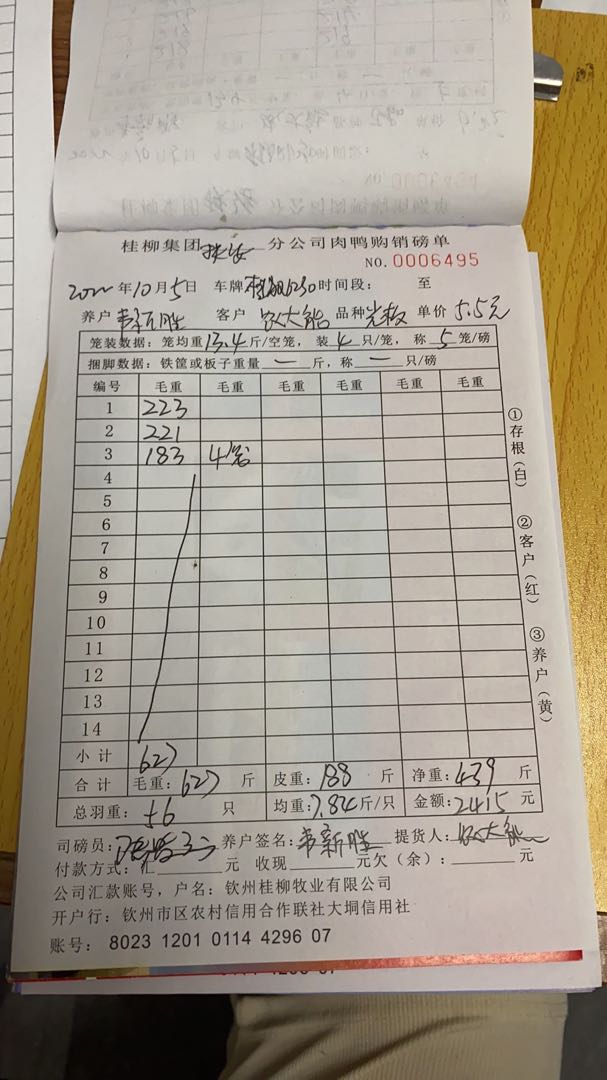 桂柳集团 分公司肉鸭购销磅单
NO.0006495
2022年10月5日 车牌 时间段： 至
养户 韦新胜 客户 品种 光板 单价 5.5元
笼装数据：笼均重13.4斤/空笼，装4只/笼，称5笼/磅
捆脚数据：铁筐或板子重量一斤，称一只/磅
编号 毛重 毛重 毛重 毛重 毛重 毛重
1 223
2 221
3 183 4笼
4
5
6
7
8
9
10
11
12
13
14
小计 627
合计 毛重：627斤 皮重：188斤 净重：439斤
总羽重：56只 均重：7.84斤/只 金额：2415元
司磅员： 养户签名：韦新胜 提货人：
付款方式：汇 元 收现 元欠（余）： 元
公司汇款账号，户名：钦州桂柳牧业有限公司
开户行：钦州市区农村信用合作联社大垌信用社
账号：8023 1201 0114 4296 07
①存根（白）
②客户（红）
③养户（黄）